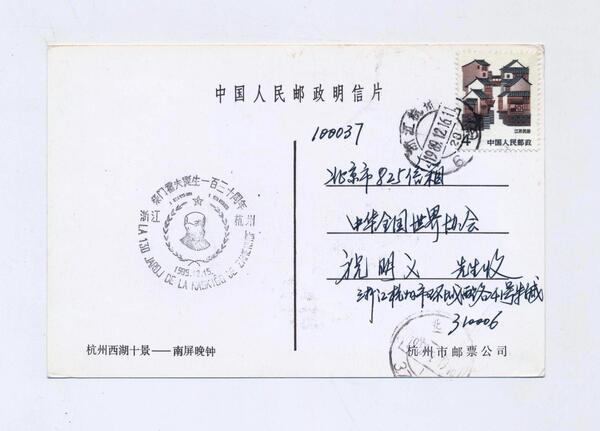 中国人民邮政明信片
4分
江苏民居
中国人民邮政
浙江杭州
1989.12.16.11
100037
北京市825信箱
中华全国世界协会
祝明义 先生收
浙江杭州市环城西路41号朱城
310006
柴门霍夫诞生一百三十周年
1859 1989
浙江 杭州
1989.12.15.
LA 130 JAROJ DE LA NASKIĜO DE ZAMENHOF
杭州西湖十景——南屏晚钟
杭州市邮票公司